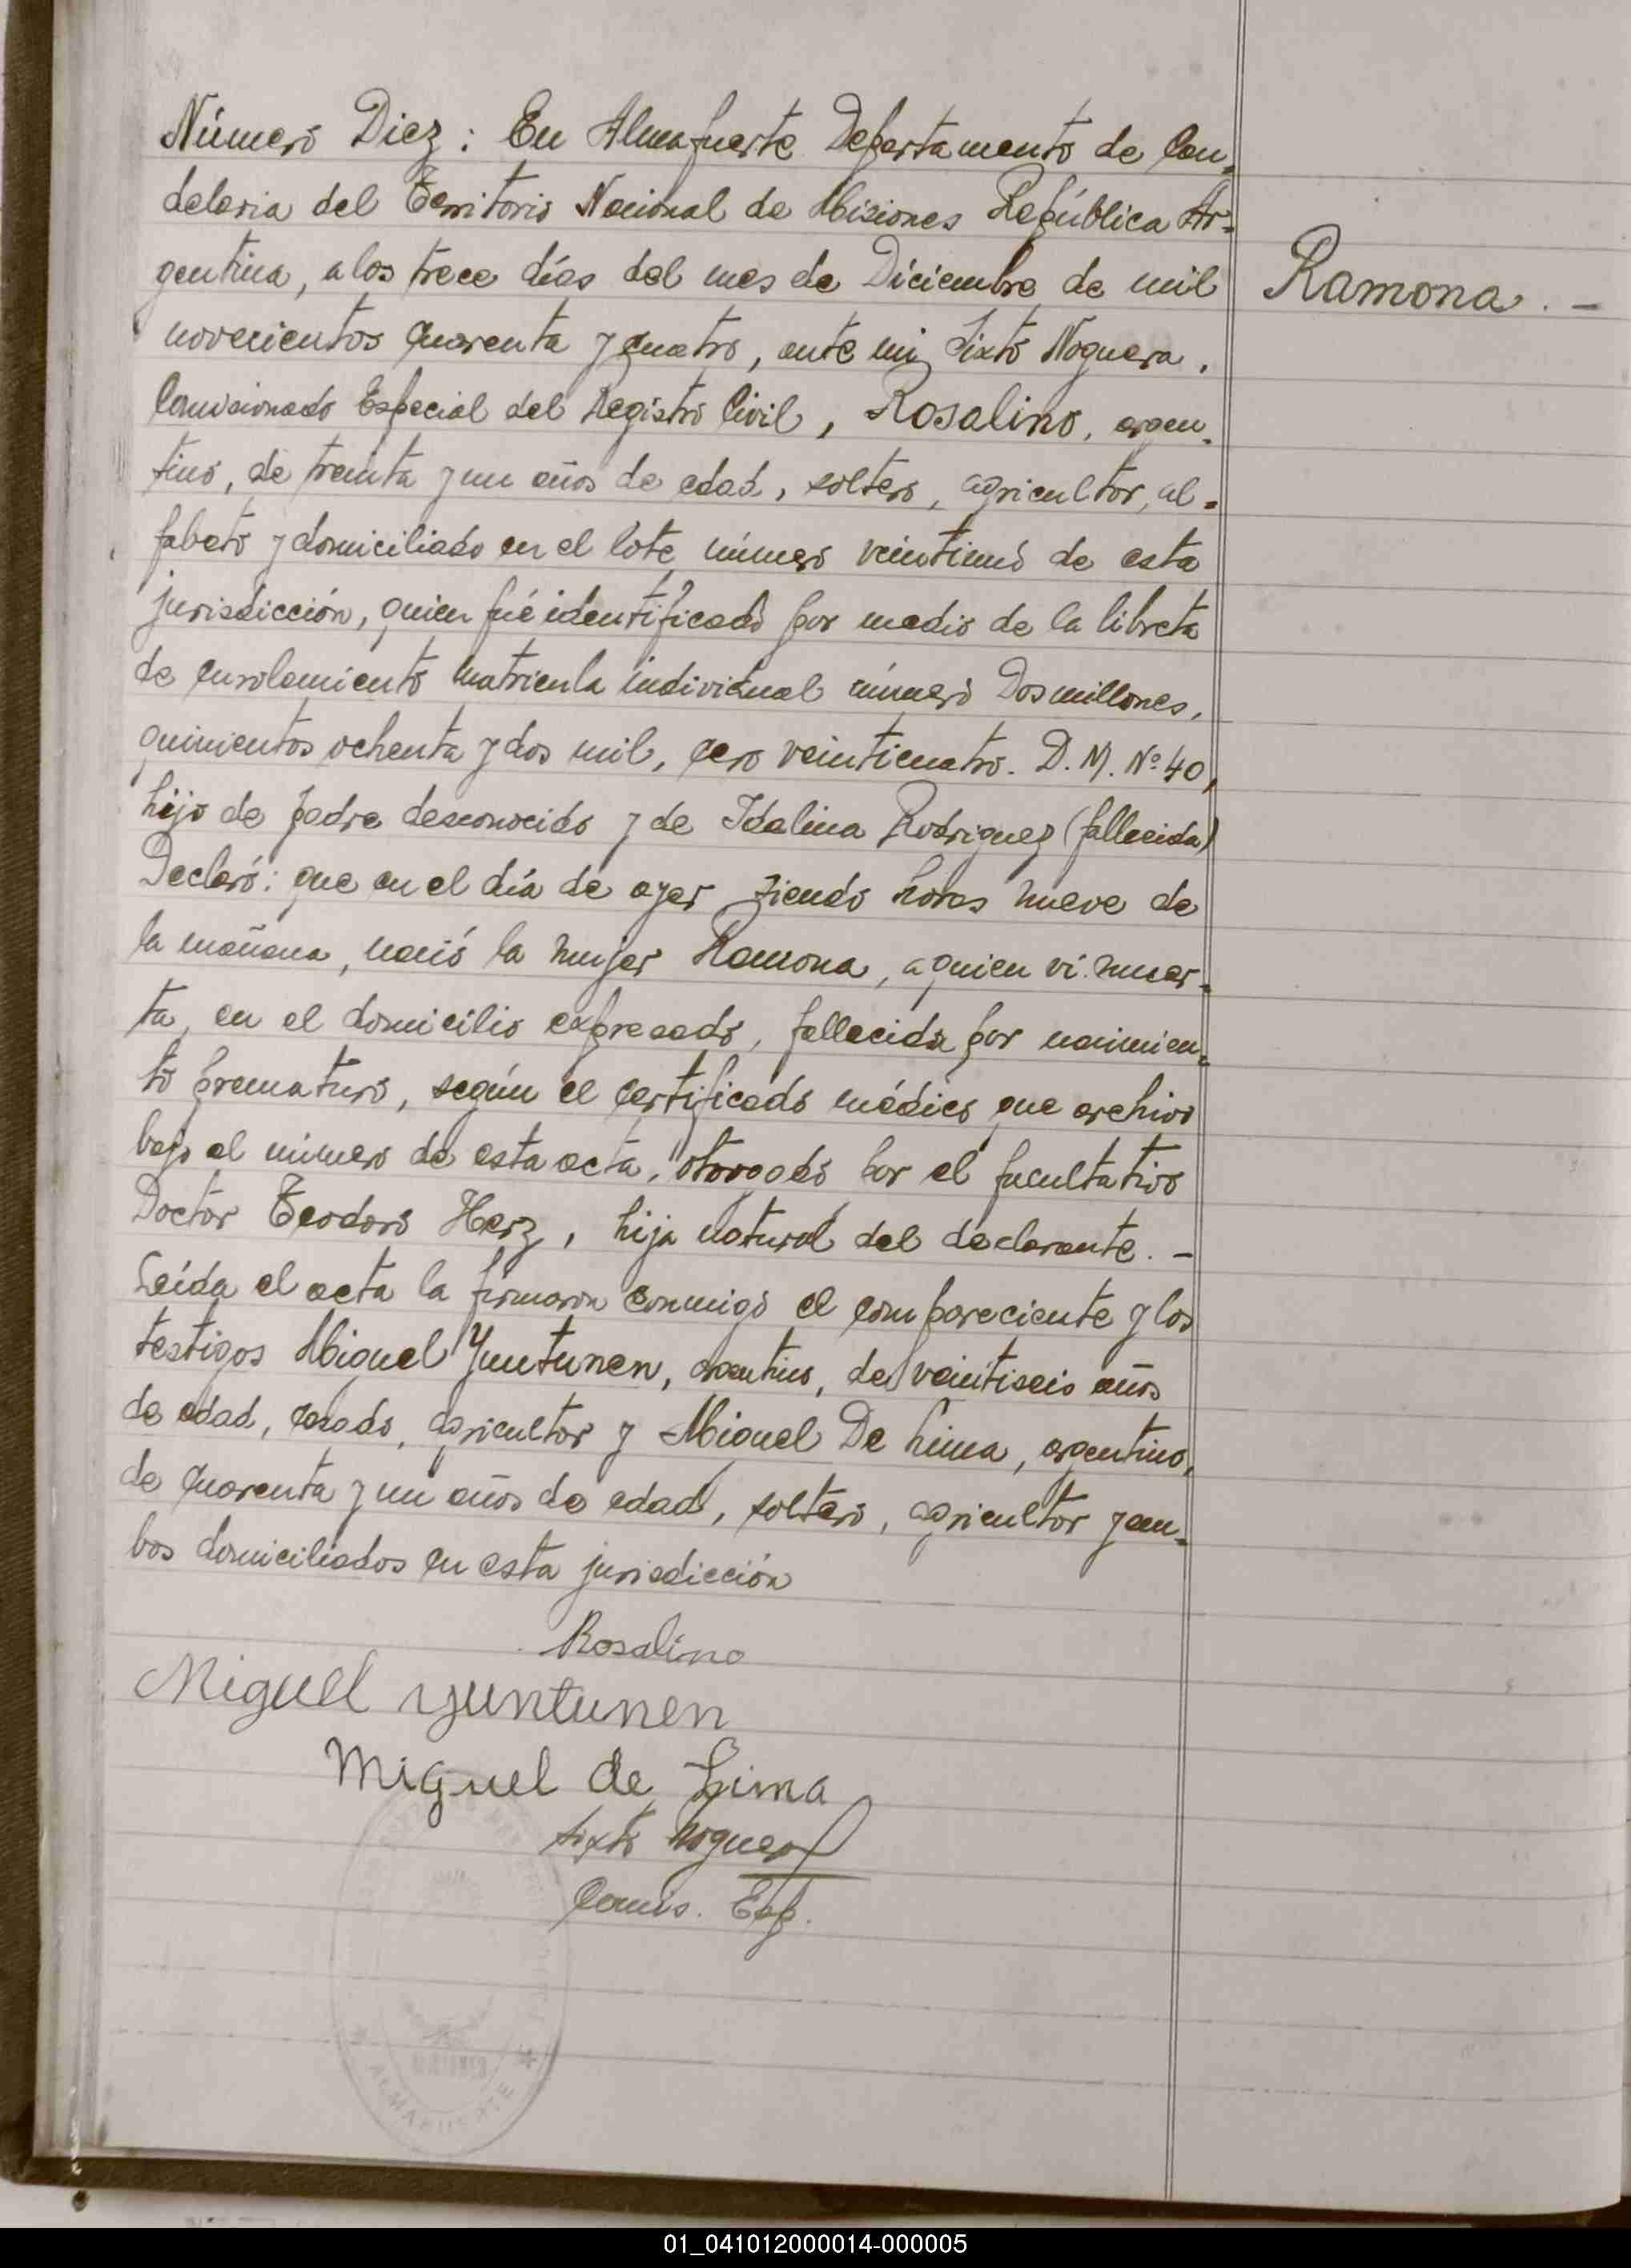 Número Diez: En Almafuerte Departamento de Can-
delaria del Territorio Nacional de Misiones República Ar-
gentina, a los trece días del mes de Diciembre de mil
Ramona. -
novecientos cuarenta y cuatro, ante mi Sixto Noguera,
Comisionado Especial del Registro Civil, Rosalino, argen-
tino, de treinta y un años de edad, soltero, agricultor, al-
fabeto y domiciliado en el lote número veintiuno de esta
jurisdicción, quien fué identificado por medio de la libreta
de enrolamiento matricula individual número Dos millones,
quinientos ochenta y dos mil, cero veinticuatro. D. M. Nº 40,
hijo de padre desconocido y de Idalina Rodriguez (fallecida)
Declaró: que en el día de ayer siendo horas nueve de
la mañana, nació la mujer Ramona, a quien vi muer-
ta, en el domicilio expresado, fallecida por nacimien-
to prematuro, según el certificado médico que archivo
bajo el número de esta acta, otorgado por el facultativo
Doctor Teodoro Herz, hija natural del declarante. -
Leída el acta la firmaron conmigo el compareciente y los
testigos Miguel Yuntunen, argentino, de veintiseis años
de edad, casado, agricultor y Miguel De Lima, argentino,
de cuarenta y un años de edad, soltero, agricultor y am-
bos domiciliados en esta jurisdicción
Rosalino
Miguel yuntunen
Miguel de Lima
Sixto Noguera
Comis. Esp.
ALMAFUERTE
01_041012000014-000005